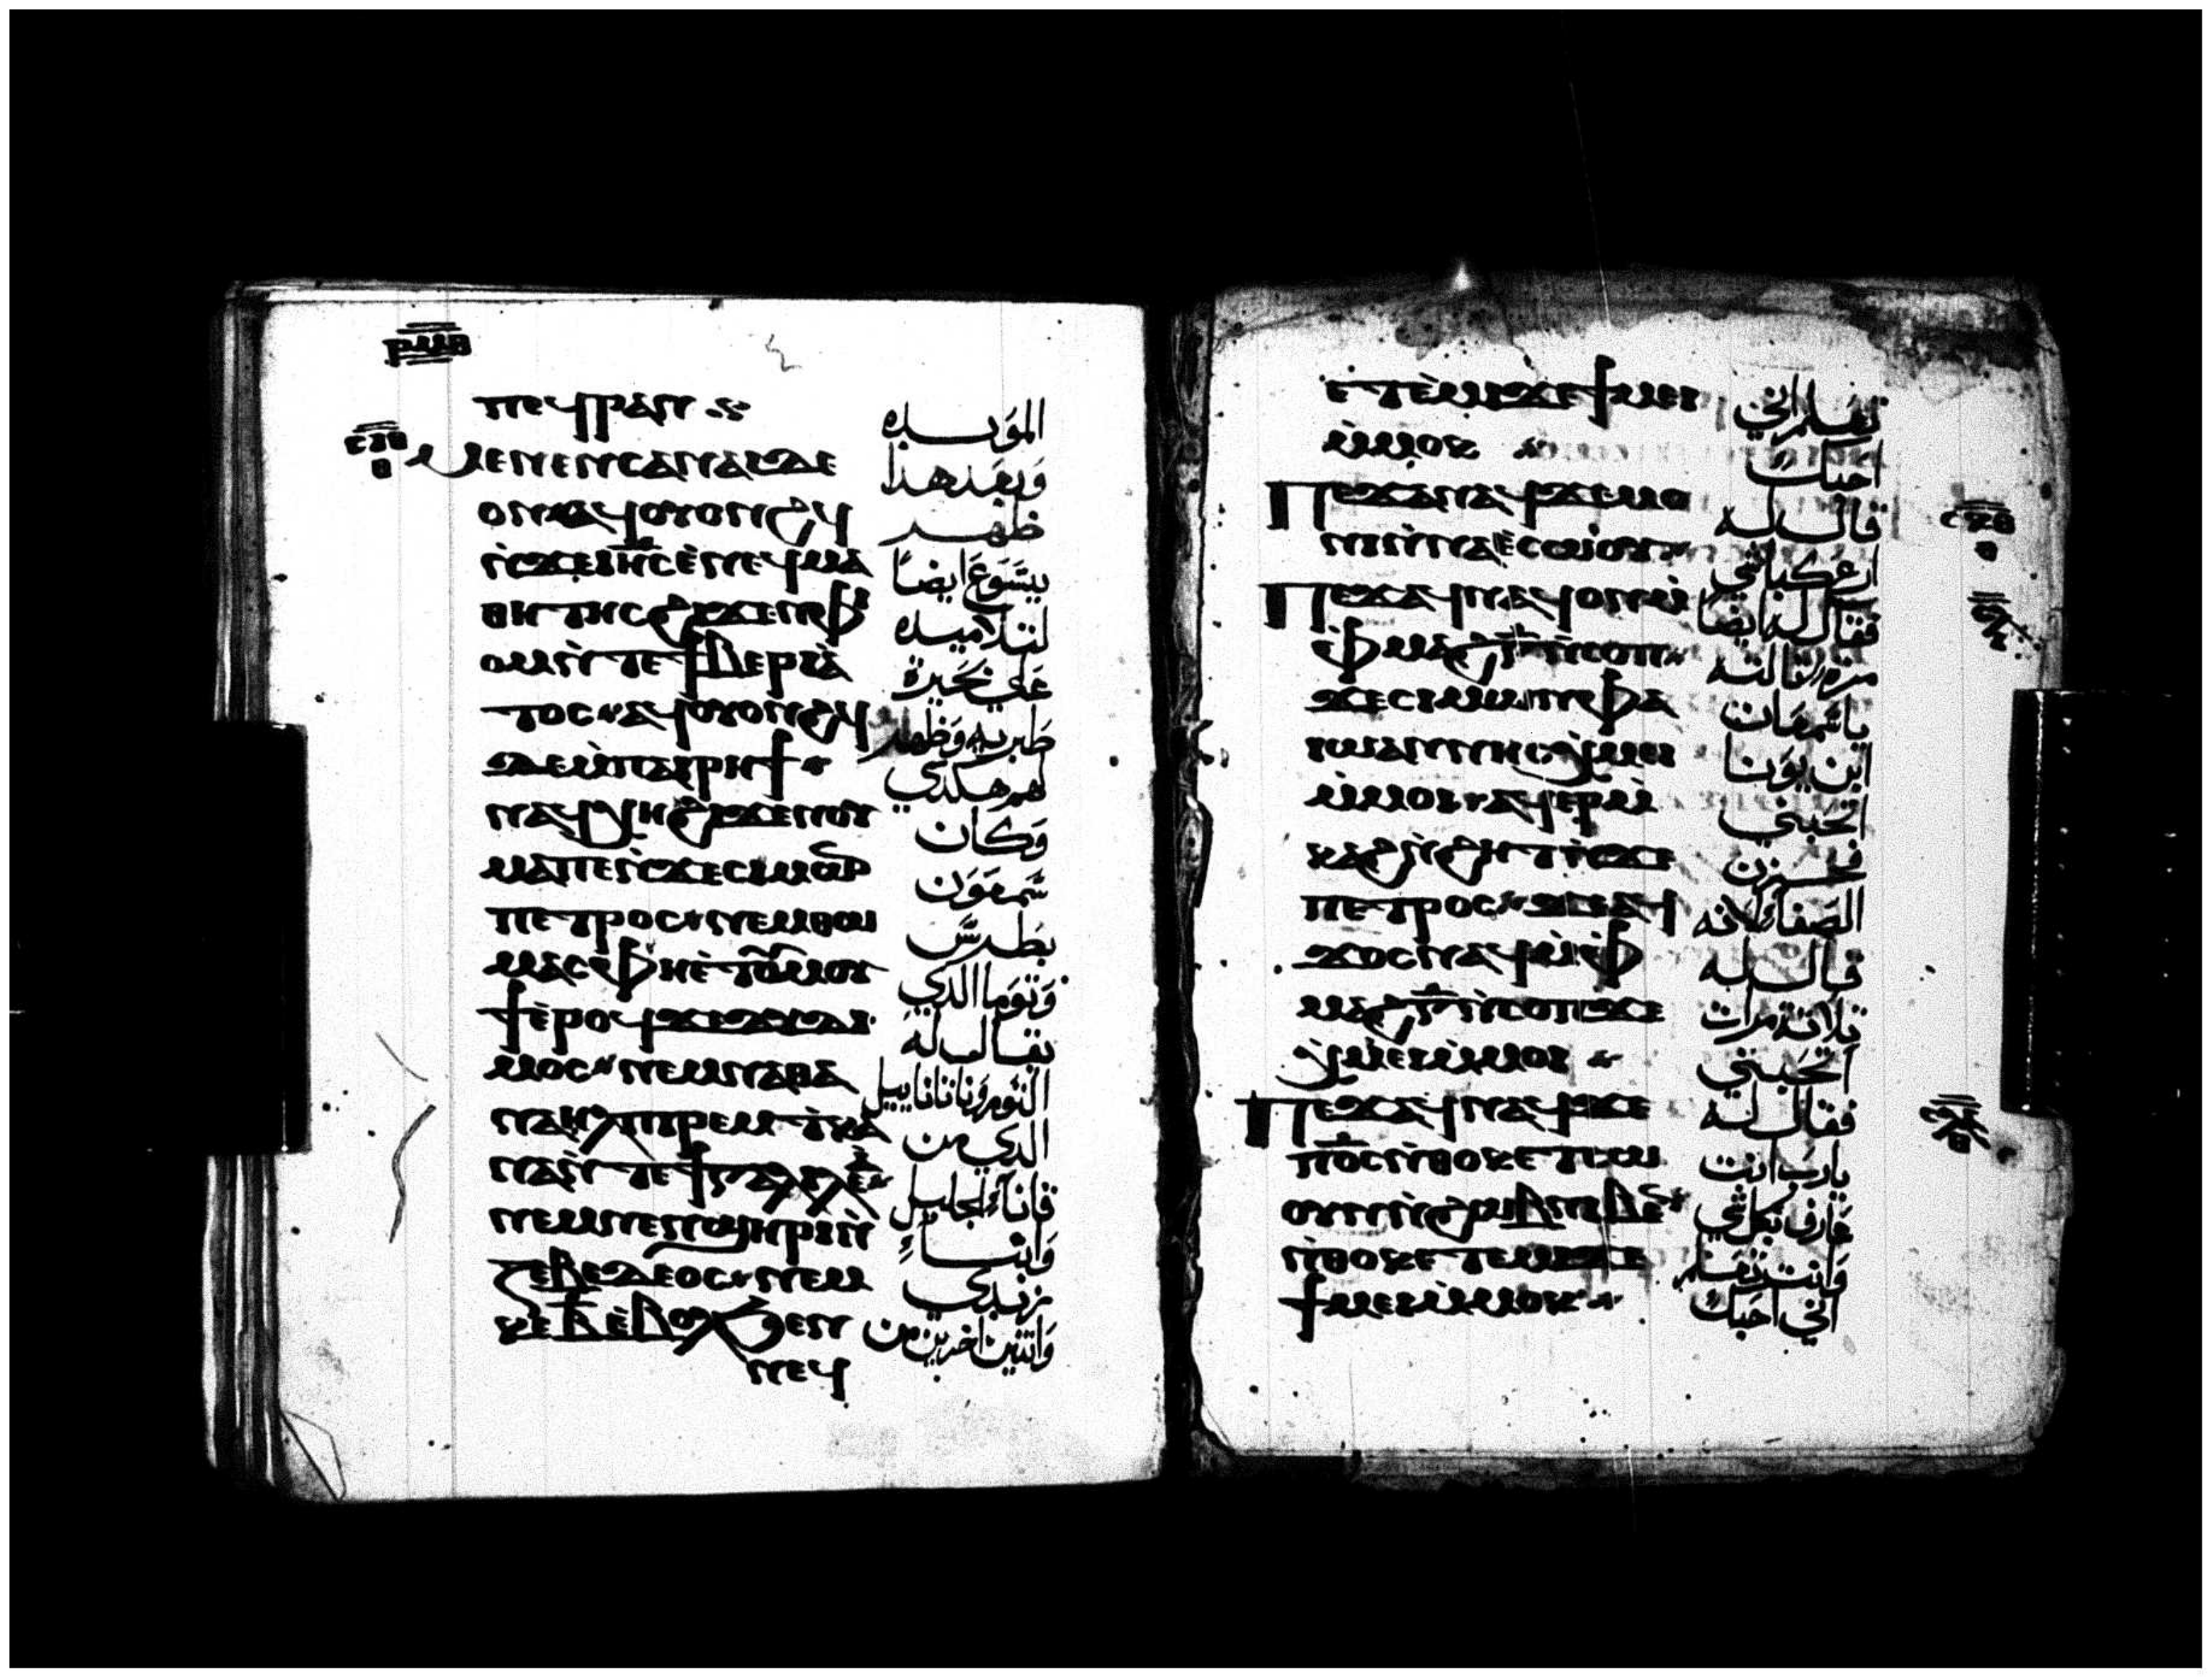 ⲣⲙⲑ
ⲡⲉϥⲣⲁⲛ
ⲙⲉⲛⲉⲛⲥⲁⲛⲁⲓⲇⲉ
ⲟⲛⲁϥⲟⲩⲟⲛϩϥ
ⲛ̀ϫⲉⲓⲏⲥⲉ̀ⲛⲉϥⲙⲁ
ⲑⲏⲧⲏⲥϩⲓϫⲉⲛⲫⲓ
ⲟⲙⲛ̀ⲧⲉϯⲃⲉⲣⲓⲁ̀
ⲧⲟⲥ ⲁϥⲟⲩⲟⲛϩϥ
ⲇⲉⲙ̀ⲡⲁⲓⲣⲏϯ
ⲛⲁϥⲭⲏϩⲓϫⲉⲛⲟⲩ
ⲙⲁⲡⲉⲛ̀ϫⲉⲥⲓⲙⲱⲛ
ⲡⲉⲧⲣⲟⲥ ⲛⲉⲙⲑⲱ
ⲙⲁⲥⲫⲏⲉ̀ⲧⲟⲩⲙⲟⲩ
ϯⲉ̀ⲣⲟϥϫⲉⲇⲓⲇⲓ
ⲙⲟⲥ ⲛⲉⲙⲛⲁⲑⲁ
ⲛⲁⲏⲗⲡⲓⲣⲉⲙⲧⲕⲁ
ⲛⲁⲛ̀ⲧⲉϯⲅⲁⲗⲓⲗⲉ̀ⲁ
ⲛⲉⲙⲛⲉⲛϣⲏⲣⲓⲛ̀
ⲍⲉⲃⲉⲇⲉⲟⲥ ⲛⲉⲙ
ⲕⲉⲃ̅ⲉ̀ⲃⲟⲗϧⲉⲛ
ⲛⲉϥ
المؤبده
وبعد هذا
ظهر
يسوع ايضا
لتلاميده
على بحيرة
طبريه وظهر
لهم هكدي
وكان
سمعون
بطرس
وتوما الدي
يقال له
التوم وناثاناييل
الدي من
قانا الجليل
وابنا
زبدي
واتنين اخرين من
ⲉ̀ⲧⲉ̀ⲙⲓϫⲉϯⲙⲉⲓ
ⲙ̀ⲙⲟⲕ
ⲡⲉϫⲁϥⲛⲁϥϫⲉⲙⲟ
ⲛⲓⲛ̀ⲛⲁⲉ̀ⲥⲱⲟⲩ
ⲡⲉϫⲁϥⲛⲁϥⲟⲛⲙ̀
ⲫⲙⲁϩⲅ̅ⲛ̀ⲥⲟⲡ
ϫⲉⲥⲓⲙⲱⲛⲫⲁ
ⲓⲱⲁⲛⲛⲏⲥⲭ̀ⲙⲉⲓ
ⲙ̀ⲙⲟⲓ ⲁϥⲉⲣⲙ̀
ⲕⲁϩⲛ̀ϩⲏⲧⲛ̀ϫⲉ
ⲡⲉⲧⲣⲟⲥ ϫⲉⲁϥ
ϫⲟⲥⲛⲁϥⲙ̀ⲫ
ⲙⲁϩⲅ̅ⲛ̀ⲥⲟⲡϫⲉ
ⲭ̀ⲙⲉⲓⲙ̀ⲙⲟⲓ
ⲡⲉϫⲁϥⲛⲁϥϫⲉ
ⲡⲟ̅ⲥ̅ⲛ̀ⲑⲟⲕⲉⲧⲥⲱ
ⲟⲩⲛⲛ̀ϩⲱⲃⲛⲓⲃⲉⲛ
ⲛ̀ⲑⲟⲕⲉⲧⲉⲙⲓϫⲉ
ϯⲙⲉⲓⲙ̀ⲙⲟⲕ
تعلم اني
احبك
قال له
ارع كباشي
فقال له ايضا
مرة تالته
يا سمعان
ابن يونا
اتحبني
فحزن
الصفا لانه
قال له
تلاتة مرات
اتحبني
فقال له
يارب انت
عارف بكل شي
وانت تعلم
اني احبك